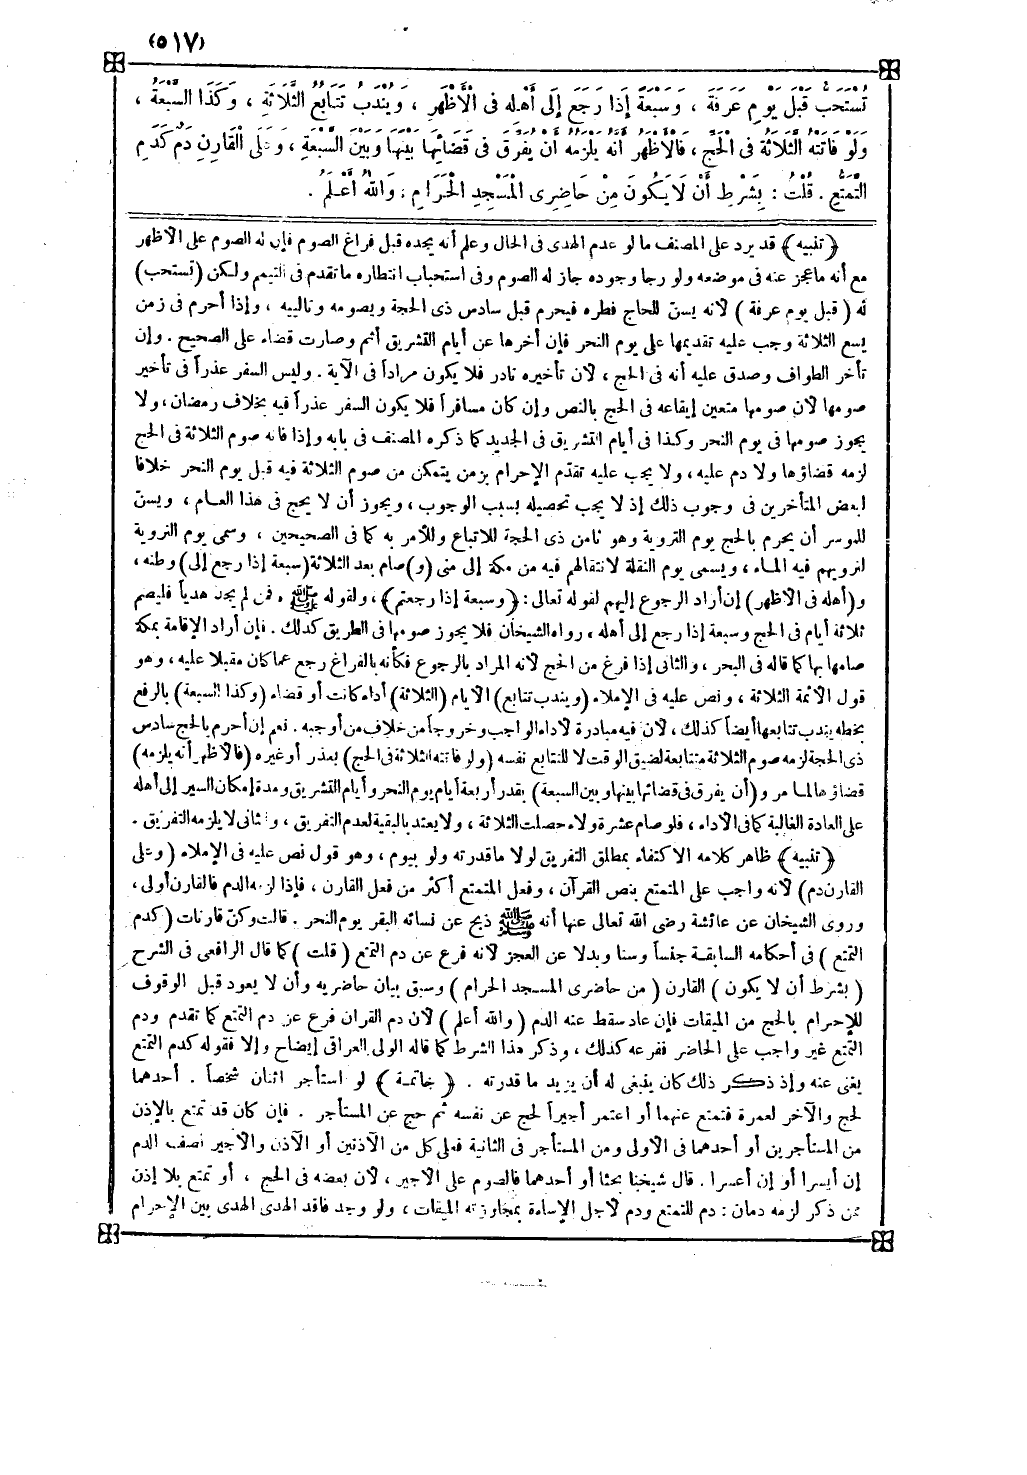 (٥١٧)
تُسْتَحَبُّ قَبْلَ يَوْمِ عَرَفَةَ ، وَسَبْعَةً إِذَا رَجَعَ إِلَى أَهْلِهِ فِى الْأَظْهَرِ ، وَيُنْدَبُ تَتَابُعُ الثَّلَاثَةِ ، وَكَذَا السَّبْعَةُ ،
وَلَوْ فَاتَتْهُ الثَّلَاثَةُ فِى الْحَجِّ ، فَالْأَظْهَرُ أَنَّهُ يَلْزَمُهُ أَنْ يُفَرِّقَ فِى قَضَائِهَا بَيْنَهَا وَبَيْنَ السَّبْعَةِ ، وَعَلَى الْقَارِنِ دَمٌ كَدَمِ
التَّمَتُّعِ . قُلْتُ : بِشَرْطِ أَنْ لَا يَكُونَ مِنْ حَاضِرِى الْمَسْجِدِ الْحَرَامِ ، وَاللهُ أَعْلَمُ .
﴿ تنبيه ﴾ قد يرد على المصنف ما لو عدم الهدى فى الحال وعلم أنه يجده قبل فراغ الصوم فإن له الصوم على الأظهر
مع أنه ما عجز عنه فى موضعه ولو رجا وجوده جاز له الصوم وفى استحباب انتظاره ما تقدم فى التيمم ولكن (تستحب)
له ( قبل يوم عرفة ) لأنه يسنّ للحاج فطره فيحرم قبل سادس ذى الحجة ويصومه وتالييه ، وإذا أحرم فى زمن
يسع الثلاثة وجب عليه تقديمها على يوم النحر فإن أخرها عن أيام التشريق أثم وصارت قضاء على الصحيح . وإن
تأخر الطواف وصدق عليه أنه فى الحج ، لأن تأخيره نادر فلا يكون مراداً فى الآية . وليس السفر عذراً فى تأخير
صومها لأن صومها متعين إيقاعه فى الحج بالنص وإن كان مسافراً فلا يكون السفر عذراً فيه بخلاف رمضان ، ولا
يجوز صومها فى يوم النحر وكذا فى أيام التشريق فى الجديد كما ذكره المصنف فى بابه وإذا فاته صوم الثلاثة فى الحج
لزمه قضاؤها ولا دم عليه ، ولا يجب عليه تقدّم الإحرام بزمن يتمكن من صوم الثلاثة فيه قبل يوم النحر خلافا
لبعض المتأخرين فى وجوب ذلك إذ لا يجب تحصيله بسبب الوجوب ، ويجوز أن لا يحج فى هذا العام ، ويسنّ
للموسر أن يحرم بالحج يوم التروية وهو ثامن ذى الحجة للاتباع وللأمر به كما فى الصحيحين ، وسمى يوم التروية
لترويهم فيه الماء ، ويسمى يوم النقلة لانتقالهم فيه من مكة إلى منى (و) صام بعد الثلاثة (سبعة إذا رجع إلى) وطنه ،
و(أهله فى الأظهر) إن أراد الرجوع إليهم لقوله تعالى : ﴿ وسبعة إذا رجعتم ﴾ ، ولقوله ﷺ « فمن لم يجد هدياً فليصم
ثلاثة أيام فى الحج وسبعة إذا رجع إلى أهله ، رواه الشيخان فلا يجوز صومها فى الطريق كذلك . فإن أراد الإقامة بمكة
صامها بها كما قاله فى البحر ، والثانى إذا فرغ من الحج لأنه المراد بالرجوع فكأنه بالفراغ رجع عما كان مقبلا عليه ، وهو
قول الأئمة الثلاثة ، ونص عليه فى الإملاء (ويندب تتابع) الأيام (الثلاثة) أداء كانت أو قضاء (وكذا السبعة) بالرفع
بخطه يندب تتابعها أيضاً كذلك ، لأن فيه مبادرة لأداء الواجب وخروجاً من خلاف من أوجبه . نعم إن أحرم بالحج سادس
ذى الحجة لزمه صوم الثلاثة متتابعة لضيق الوقت لا للتتابع نفسه (ولو فاتته الثلاثة فى الحج) بعذر أو غيره (فالأظهر أنه يلزمه)
قضاؤها لما مر و(أن يفرق فى قضائها بينها وبين السبعة) بقدر أربعة أيام يوم النحر وأيام التشريق ومدة إمكان السير إلى أهله
على العادة الغالبة كما فى الأداء ، فلو صام عشرة ولاء حصلت الثلاثة ، ولا يعتد بالبقية لعدم التفريق ، والثانى لا يلزمه التفريق .
﴿ تنبيه ﴾ ظاهر كلامه الاكتفاء بمطلق التفريق لولا ما قدرته ولو بيوم ، وهو قول نص عليه فى الإملاء (وعلى
القارن دم) لأنه واجب على المتمتع بنص القرآن ، وفعل المتمتع أكثر من فعل القارن ، فإذا لزمه الدم فالقارن أولى ،
وروى الشيخان عن عائشة رضى الله تعالى عنها أنه ﷺ ذبح عن نسائه البقر يوم النحر . قالت وكنّ قارنات (كدم
التمتع ) فى أحكامه السابقة جنساً وسنا وبدلا عن العجز لأنه فرع عن دم التمتع ( قلت ) كما قال الرافعى فى الشرح
( بشرط أن لا يكون ) القارن ( من حاضرى المسجد الحرام ) وسبق بيان حاضريه وأن لا يعود قبل الوقوف
للإحرام بالحج من الميقات فإن عاد سقط عنه الدم ( والله أعلم ) لأن دم القران فرع عن دم التمتع كما تقدم ودم
التمتع غير واجب على الحاضر ففرعه كذلك ، وذكر هذا الشرط كما قاله الولى العراقى إيضاح وإلا فقوله كدم التمتع
يغنى عنه وإذ ذكر ذلك كان ينبغى له أن يزيد ما قدرته . ﴿ خاتمة ﴾ لو استأجر اثنان شخصاً . أحدهما
لحج والآخر لعمرة فتمتع عنهما أو اعتمر أجيراً لحج عن نفسه ثم حج عن المستأجر . فإن كان قد تمتع بالإذن
من المستأجرين أو أحدهما فى الأولى ومن المستأجر فى الثانية فعلى كل من الآذنين أو الآذن والأجير نصف الدم
إن أيسرا أو إن أعسرا . قال شيخنا بحثا أو أحدهما فالصوم على الأجير ، لأن بعضه فى الحج ، أو تمتع بلا إذن
ممن ذكر لزمه دمان : دم للتمتع ودم لأجل الإساءة بمجاوزته الميقات ، ولو وجد فاقد الهدى الهدى بين الإحرام